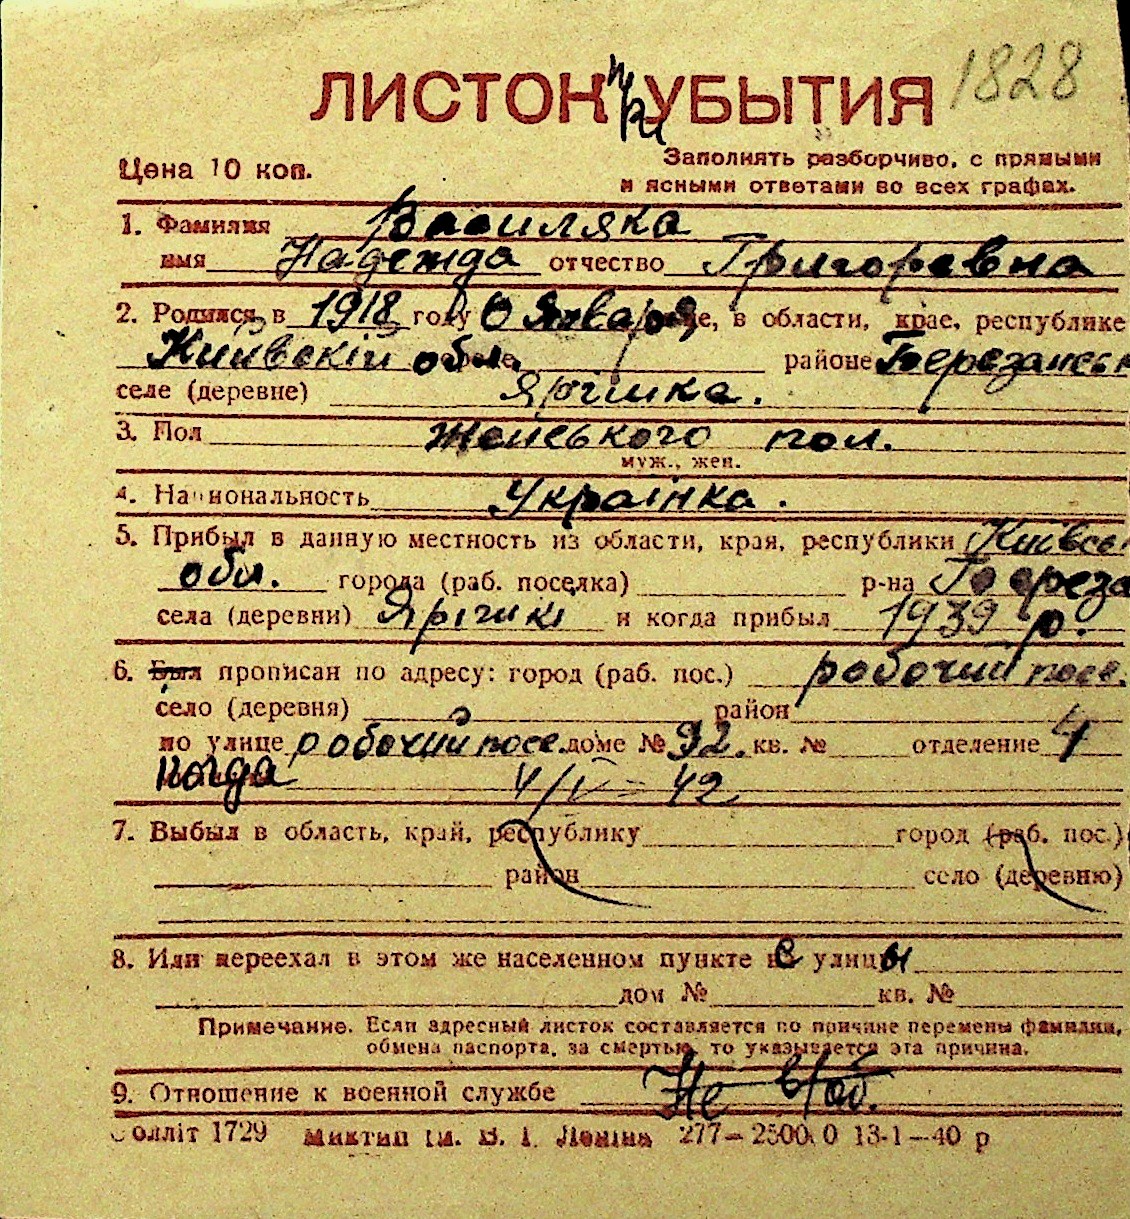 1828
ЛИСТОК при УБЫТИЯ
Цена 10 коп.
Заполнять разборчиво, с прямыми
и ясными ответами во всех графах.
1. Фамилия Василяка
имя Надежда отчество Григоревна
2. Родился в 1918 году 10 Января, в области, крае, республике
Київскій обл. районе Березанськ
селе (деревне) Ярішка.
3. Пол Женського пол.
муж., жен.
4. Национальность Українка.
5. Прибыл в данную местность из области, края, республики Київсь
обл. города (раб. поселка) р-на Береза
села (деревни) и когда прибыл 1939 р.
6. Был прописан по адресу: город (раб. пос.) робочий посе.
село (деревня) район
по улице робочий посе. доме № 92. кв. № отделение 4
когда 4/IV = 42
7. Выбыл в область, край, республику город (раб. пос.)
район село (деревню)
8. Или переехал в этом же населенном пункте с улицы
дом № кв. №
Примечание. Если адресный листок составляется по причине перемены фамилии,
обмена паспорта, за смертью, то указывается эта причина.
9. Отношение к военной службе Не в/об.
Обліт 1729 Миктип ім. В. І. Леніна 277—25000 13-1—40 р